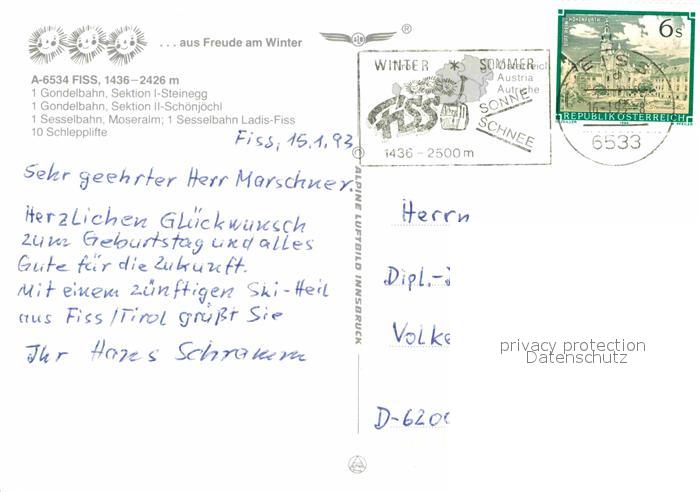 ... aus Freude am Winter
®
A-6534 FISS, 1436–2426 m
1 Gondelbahn, Sektion I-Steinegg
1 Gondelbahn, Sektion II-Schönjöchl
1 Sesselbahn, Moseralm; 1 Sesselbahn Ladis-Fiss
10 Schlepplifte
Fiss, 15.1.93
Sehr geehrter Herr Marschner.
Herzlichen Glückwunsch
zum Geburtstag und alles
Gute für die Zukunft.
Mit einem zünftigen Ski-Heil
aus Fiss/Tirol grüßt Sie
Ihr Hans Schramm
© ALPINE LUFTBILD INNSBRUCK
WINTER * SOMMER
Österreich
Austria
Autriche
Fiss
SONNE
SCHNEE
1436-2500m
6s
REPUBLIK ÖSTERREICH
FISS
6533
Herrn
Dipl.-
Volke
D-620
privacy protection
Datenschutz